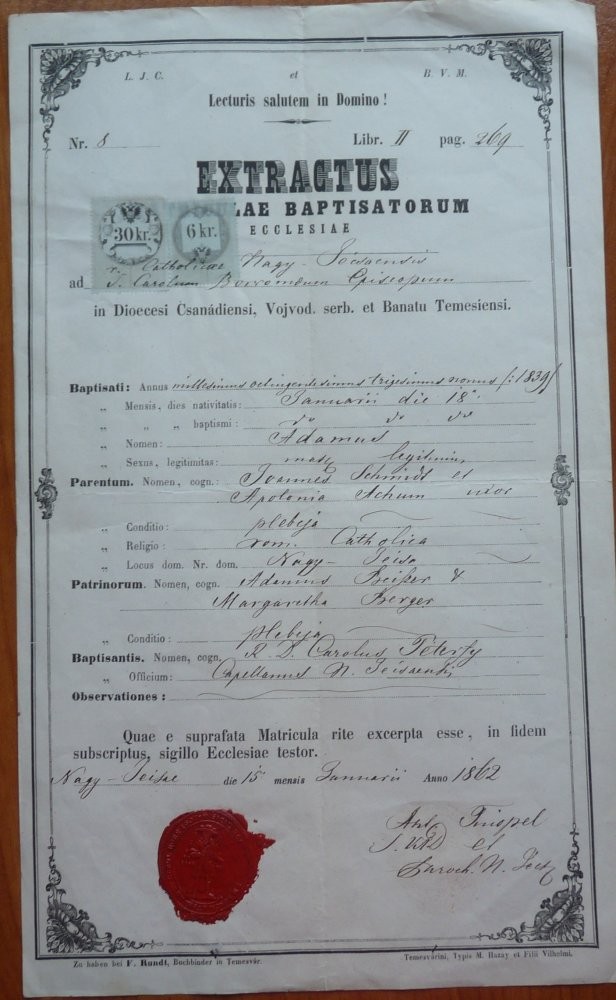 L. J. C. et B. V. M.
Lecturis salutem in Domino!
Nr. 8 Libr. II pag. 269
EXTRACTUS
LAE BAPTISATORUM
ECCLESIAE
30 kr. 6 kr.
r. Catholicae Nagy-
ad S. Carolum Borromaeum Episcopum
in Dioecesi Csanádiensi, Vojvod. serb. et Banatu Temesiensi.
Baptisati: Annus millesimus octingentesimus trigesimus nonus /: 1839 /
„ Mensis, dies nativitatis: Januarii die 18a
„ „ „ baptismi: do do do
„ Nomen: Adamus
„ Sexus, legitimitas: masc. legitimus
Parentum. Nomen, cogn.: Joannes Schmidt et
Apolonia uxor
„ Conditio: plebeja
„ Religio: rom. Catholica
„ Locus dom. Nr. dom. Nagy-
Patrinorum. Nomen, cogn. Adamus &
Margaretha Berger
„ Conditio: plebeja
Baptisantis. Nomen, cogn. R. D. Carolus
„ Officium: Capellanus N.
Observationes:
Quae e suprafata Matricula rite excerpta esse, in fidem
subscriptus, sigillo Ecclesiae testor.
Nagy- die 15 mensis Januarii Anno 1862
Ant.
et
Paroch. N.
Zu haben bei F. Rundt, Buchbinder in Temesvár.
Temesvárini, Typis M. Hazay et Filii Vilhelmi.